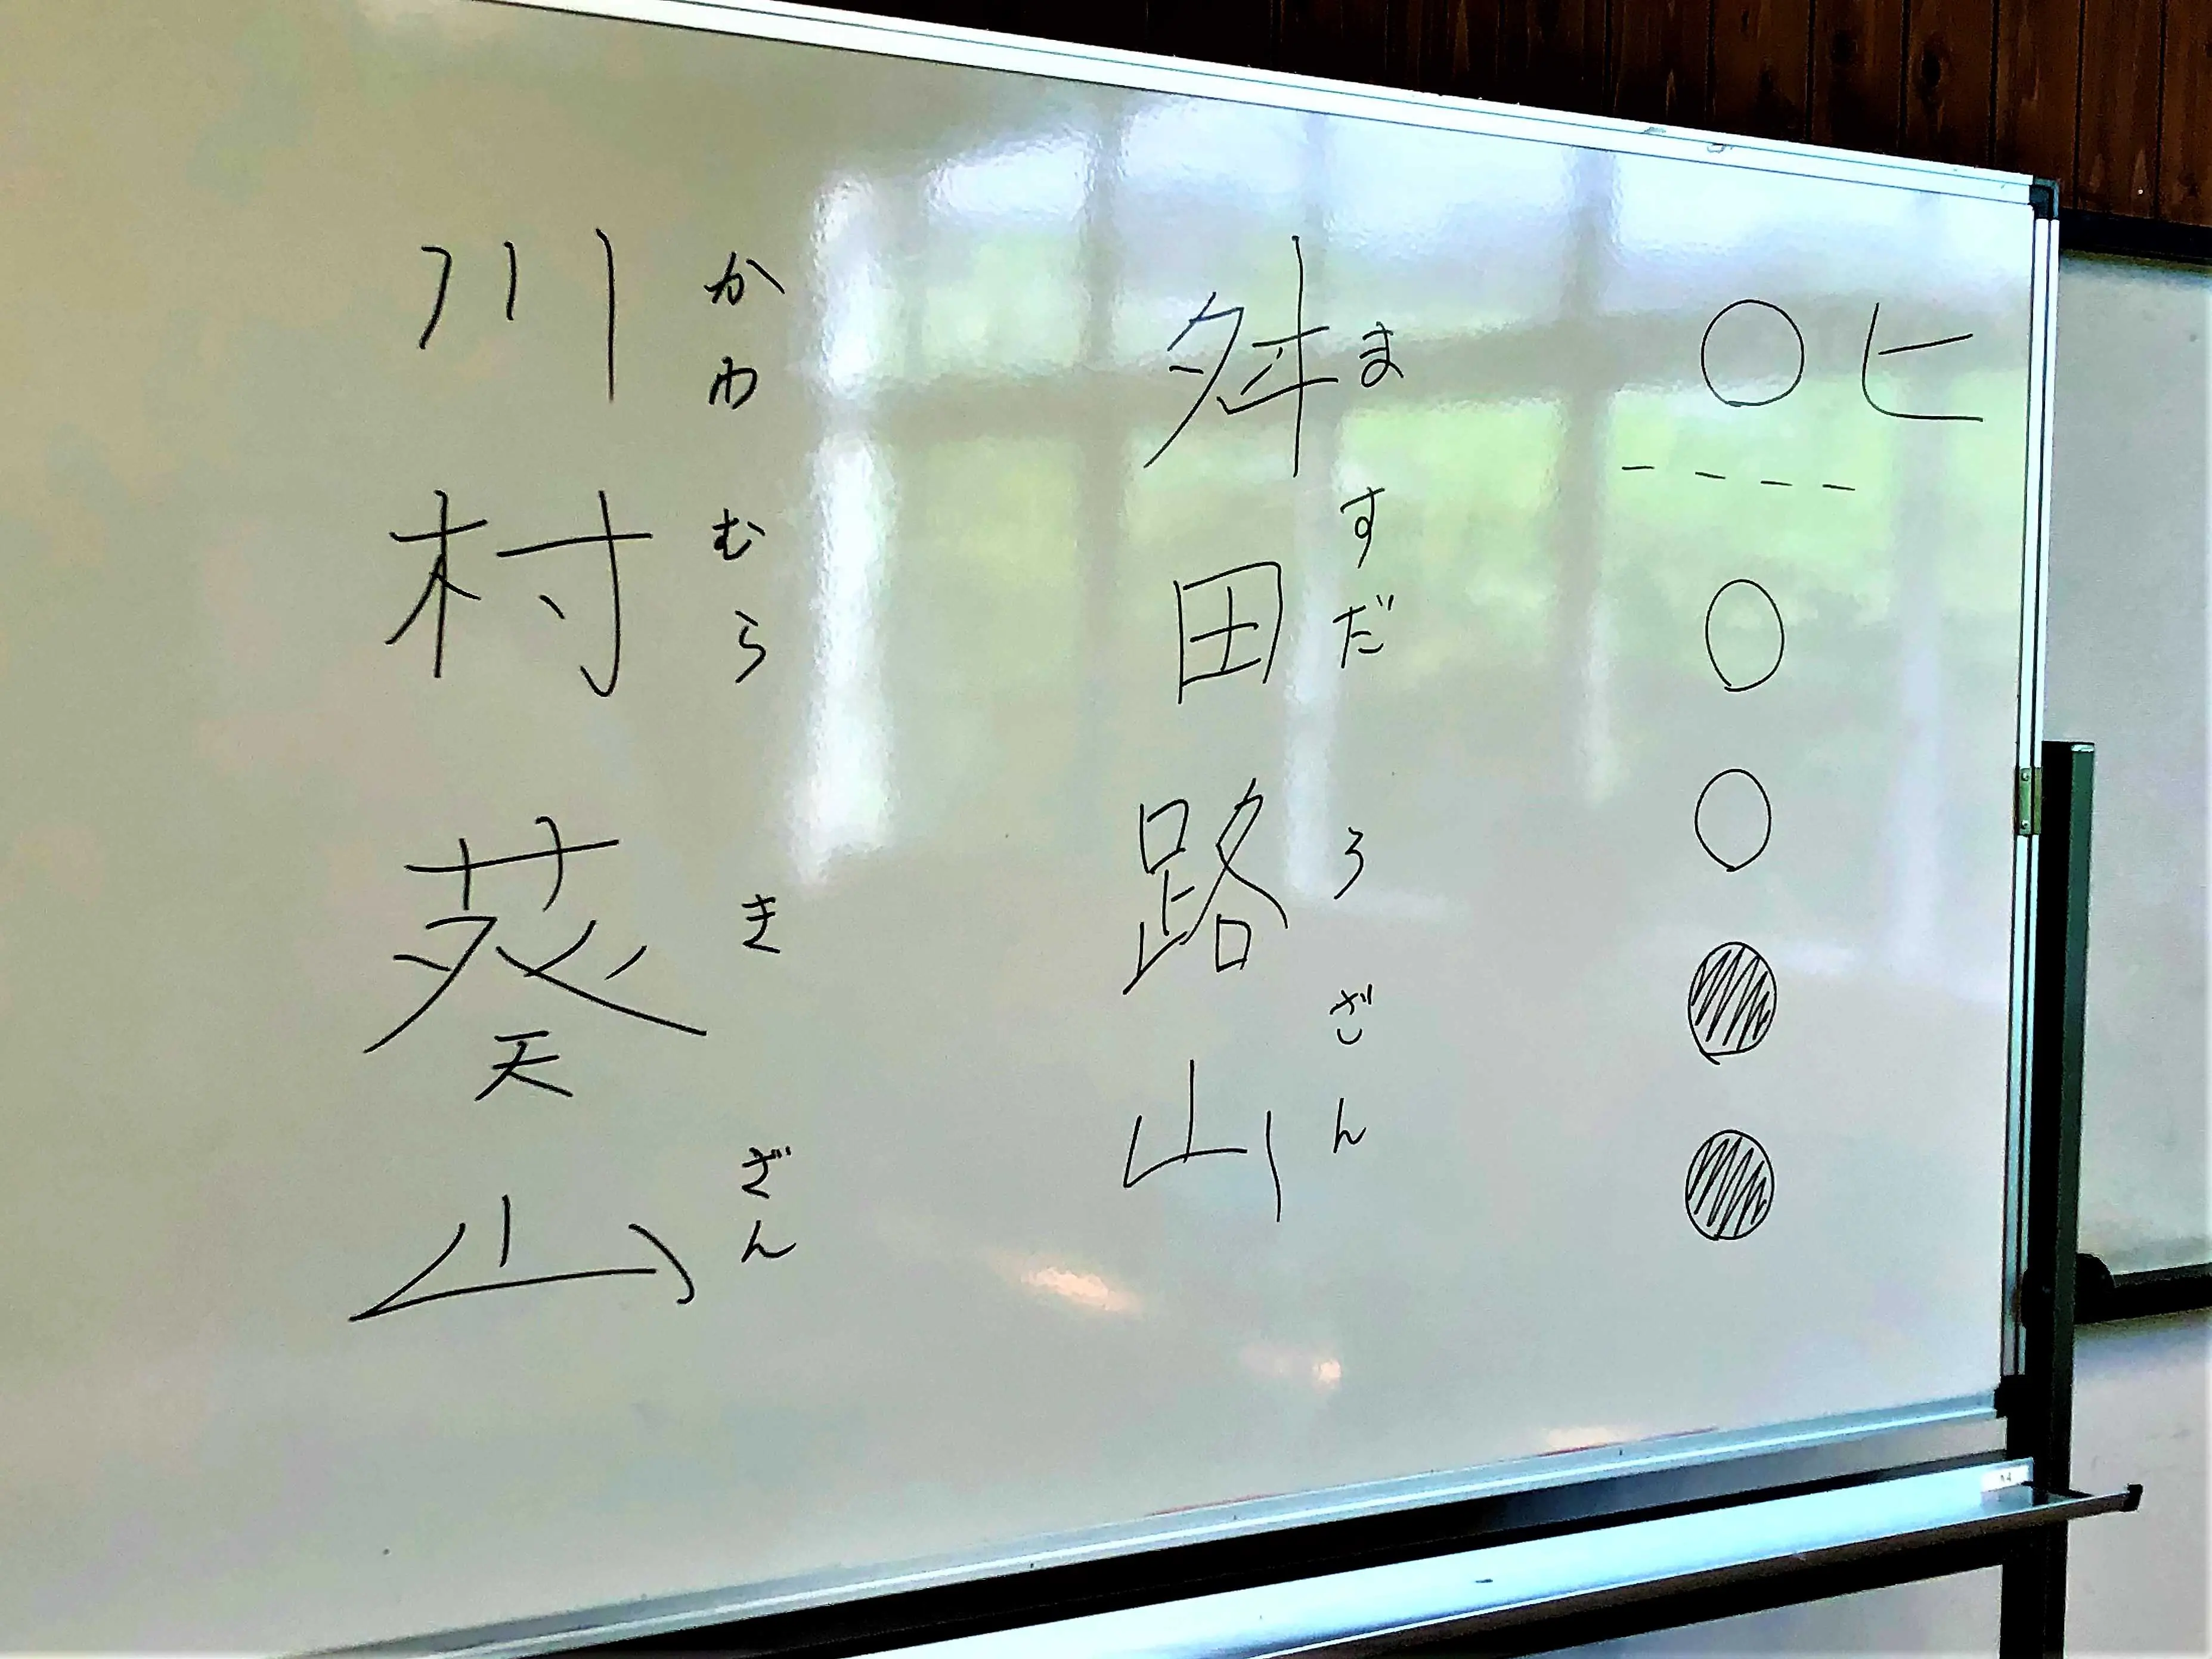 ○ヒ
○
○
●
●
舛田路山
ますだろざん
川村葵山
かわむらきざん